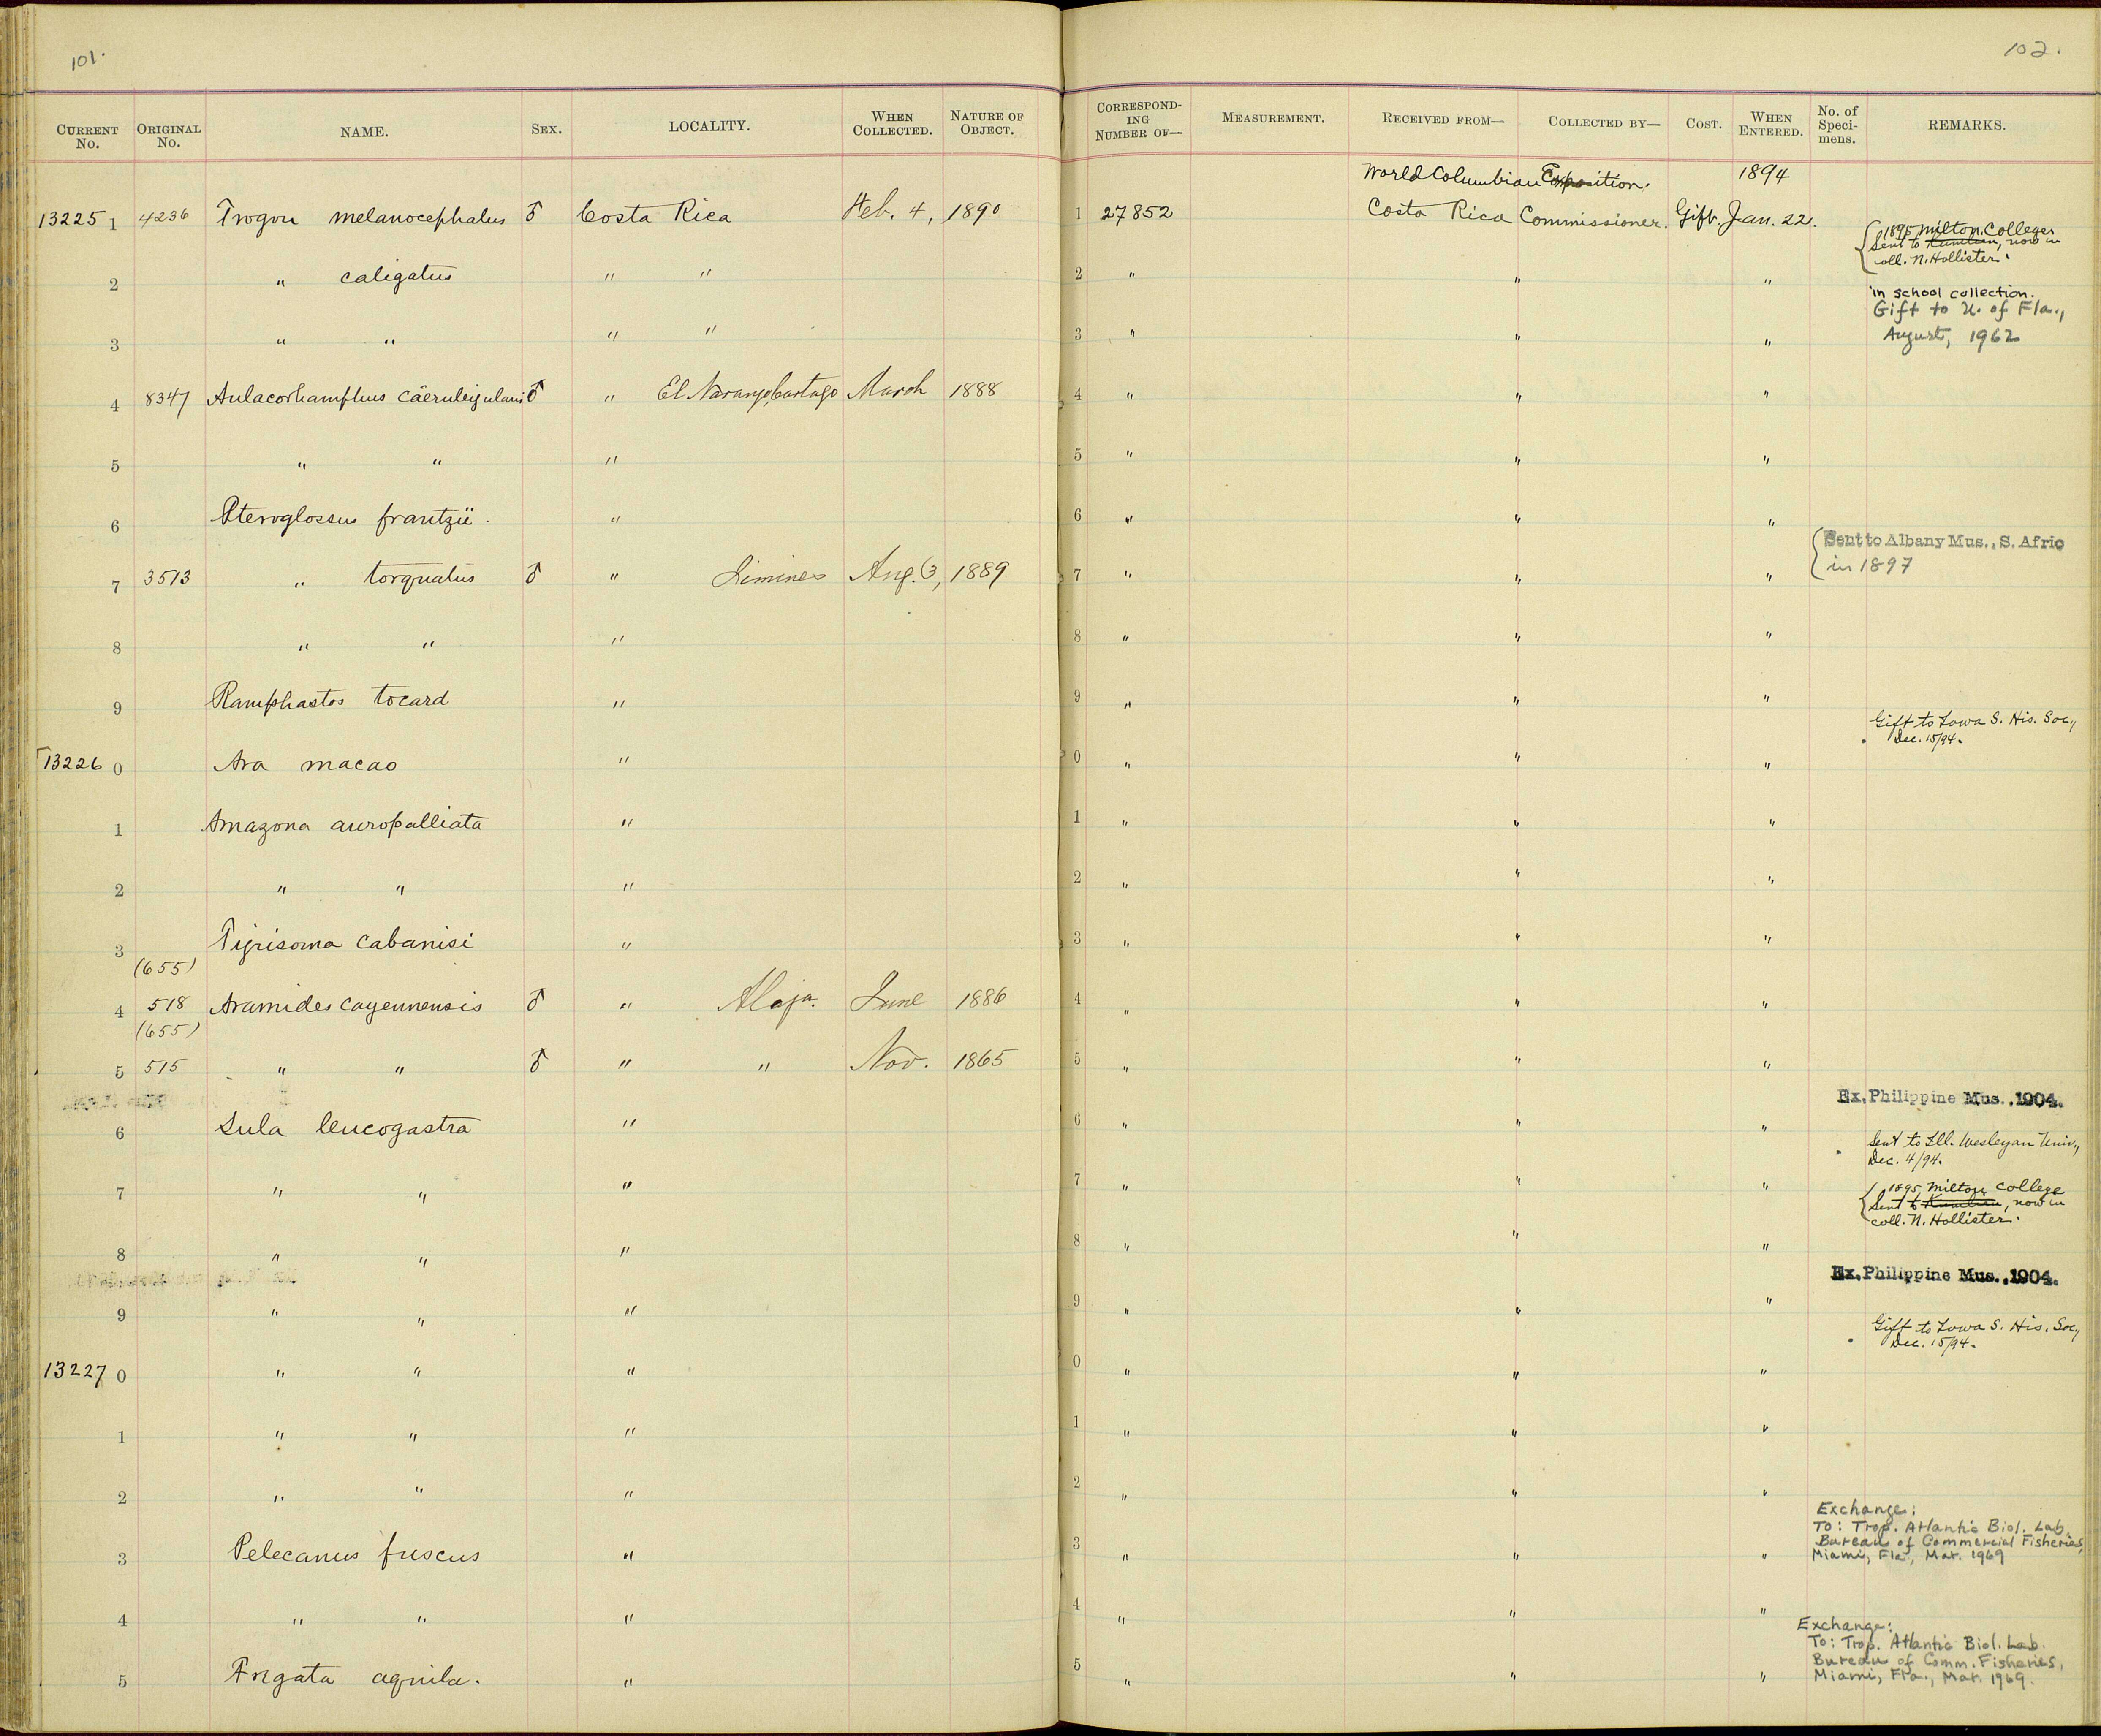 101.
CURRENT No. ORIGINAL No. NAME. SEX. LOCALITY. WHEN COLLECTED. NATURE OF OBJECT.
13225 1 4236 Trogon melanocephalus ♂ Costa Rica Feb. 4, 1890
2 " caligatus " "
3 " " " "
4 8347 Aulacorhamphus cäeruleigularis ♂ " El Naranjo, Cartago March 1888
5 " " "
6 Pteroglossus frantzii. "
7 3513 " torquatus ♂ " Jimines Aug. 3, 1889
8 " " "
9 Ramphastos tocard "
13226 0 Ara macao "
1 Amazona auropalliata "
2 " " "
3 Tigrisoma cabanisi "
(655)
4 518 Aramides cayennensis ♂ " Alaja. June 1886
(655)
5 515 " " ♂ " " Nov. 1865
6 Sula leucogastra "
7 " " "
8 " " "
9 " " "
13227 0 " " "
1 " " "
2 " " "
3 Pelecanus fuscus "
4 " " "
5 Fregata aquila. "
102.
CORRESPONDING NUMBER OF— MEASUREMENT. RECEIVED FROM— COLLECTED BY— COST. WHEN ENTERED. No. of Specimens. REMARKS.
World Columbian Exposition. 1894
1 27852 Costa Rica Commissioner. Gift. Jan. 22.
1895 Milton College
Sent to Kumlien, now in
coll. N. Hollister.
2 " " "
in school collection.
Gift to U. of Fla.,
3 " " " August, 1962
4 " " "
5 " " "
6 " " "
Sent to Albany Mus., S. Afric
7 " " " in 1897
8 " " "
9 " " "
Gift to Iowa S. His. Soc.,
Dec. 15/94.
0 " " "
1 " " "
2 " " "
3 " " "
4 " " "
5 " " "
Ex. Philippine Mus., 1904.
6 " " "
Sent to Ill. Wesleyan Univ.,
Dec. 4/94.
7 " " "
1895 Milton College
Sent to Kumlien, now in
coll. N. Hollister.
8 " " "
Ex. Philippine Mus., 1904.
9 " " "
Gift to Iowa S. His. Soc.,
Dec. 15/94.
0 " " "
1 " " "
2 " " "
Exchange:
To: Trop. Atlantic Biol. Lab.
Bureau of Commercial Fisheries,
3 " " " Miami, Fla., Mar. 1969
4 " " "
Exchange:
To: Trop. Atlantic Biol. Lab.
Bureau of Comm. Fisheries,
5 " " " Miami, Fla., Mar. 1969.